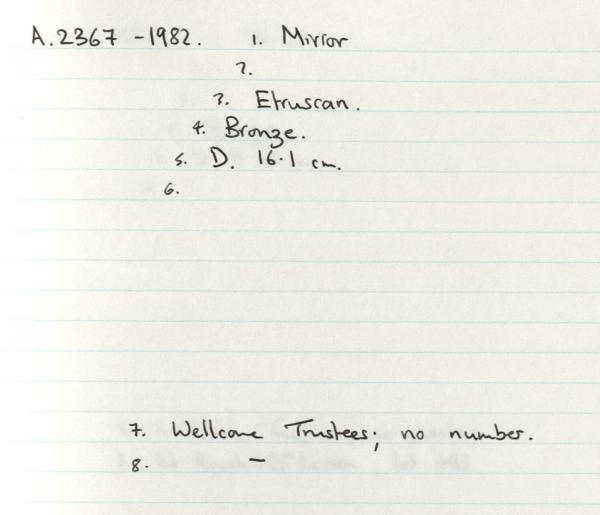 A.2367 -1982. 1. Mirror
2.
3. Etruscan.
4. Bronze.
5. D. 16.1 cm.
6.
7. Wellcome Trustees; no number.
8. –